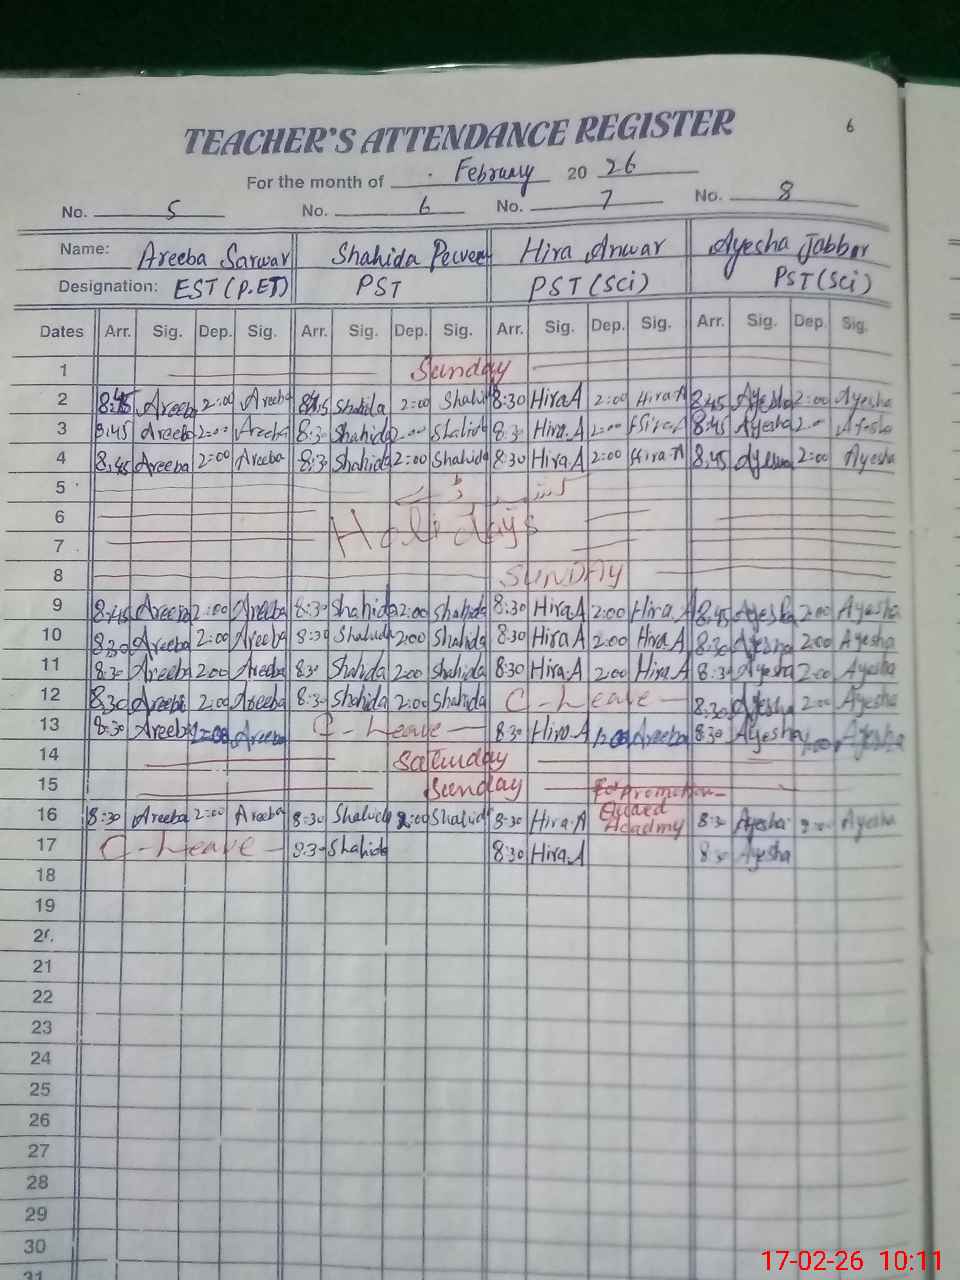 TEACHER'S ATTENDANCE REGISTER 6
For the month of February 20 26
No. 5 No. 6 No. 7 No. 8
Name: Areeba Sarwar Shahida Perveen Hira Anwar Ayesha Jabbar
Designation: EST (P.ET) PST PST (Sci) PST (Sci)
Dates Arr. Sig. Dep. Sig. Arr. Sig. Dep. Sig. Arr. Sig. Dep. Sig. Arr. Sig. Dep. Sig.
1 Sunday
2 8:45 Areeba 2:00 Areeba Shahida 2:00 Shahi 8:30 Hira A 2:00 Hira A 8,45 Ayesha 2:00 Ayesha
3 8,45 Areeba 2:00 Areeba 8:30 Shahida 2:00 Shahid 8:30 Hira.A 2:00 Hira.A 8:45 Ayesha 2:00 Ayesha
4 8,45 Areeba 2:00 Areeba 8:30 Shahida 2:00 Shahid 8:30 Hira.A 2:00 Hira A 8,45 Ayesha 2:00 Ayesha
5
6 Holidays
7
8 SUNDAY
9 8,45 Areeba 2:00 Areeba 8:30 Shahida 2:00 Shahida 8:30 Hira.A 2:00 Hira.A 8,45 Ayesha 2:00 Ayesha
10 8,30 Areeba 2:00 Areeba 8:30 Shahida 2:00 Shahida 8:30 Hira A 2:00 Hira.A 8:30 Ayesha 2:00 Ayesha
11 8:30 Areeba 2:00 Areeba 8:30 Shahida 2:00 Shahida 8:30 Hira.A 2:00 Hira.A 8:30 Ayesha 2:00 Ayesha
12 8,30 Areeba 2:00 Areeba 8:30 Shahida 2:00 Shahida C-Leave 8:30 Ayesha 2:00 Ayesha
13 8:30 Areeba 12:00 Areeba C-Leave 8:30 Hira.A 12:00 Areeba 8:30 Ayesha Ayesha
14 Saturday
15 Sunday
16 8:30 Areeba 2:00 Areeba 8:30 Shahida 2:00 Shahid 8:30 Hira.A For promotion Quaed Acadmy 8:30 Ayesha 2:00 Ayesha
17 C-Leave 8:30 Shahida 8:30 Hira.A 8:30 Ayesha
18
19
20.
21
22
23
24
25
26
27
28
29
30
31
17-02-26 10:11